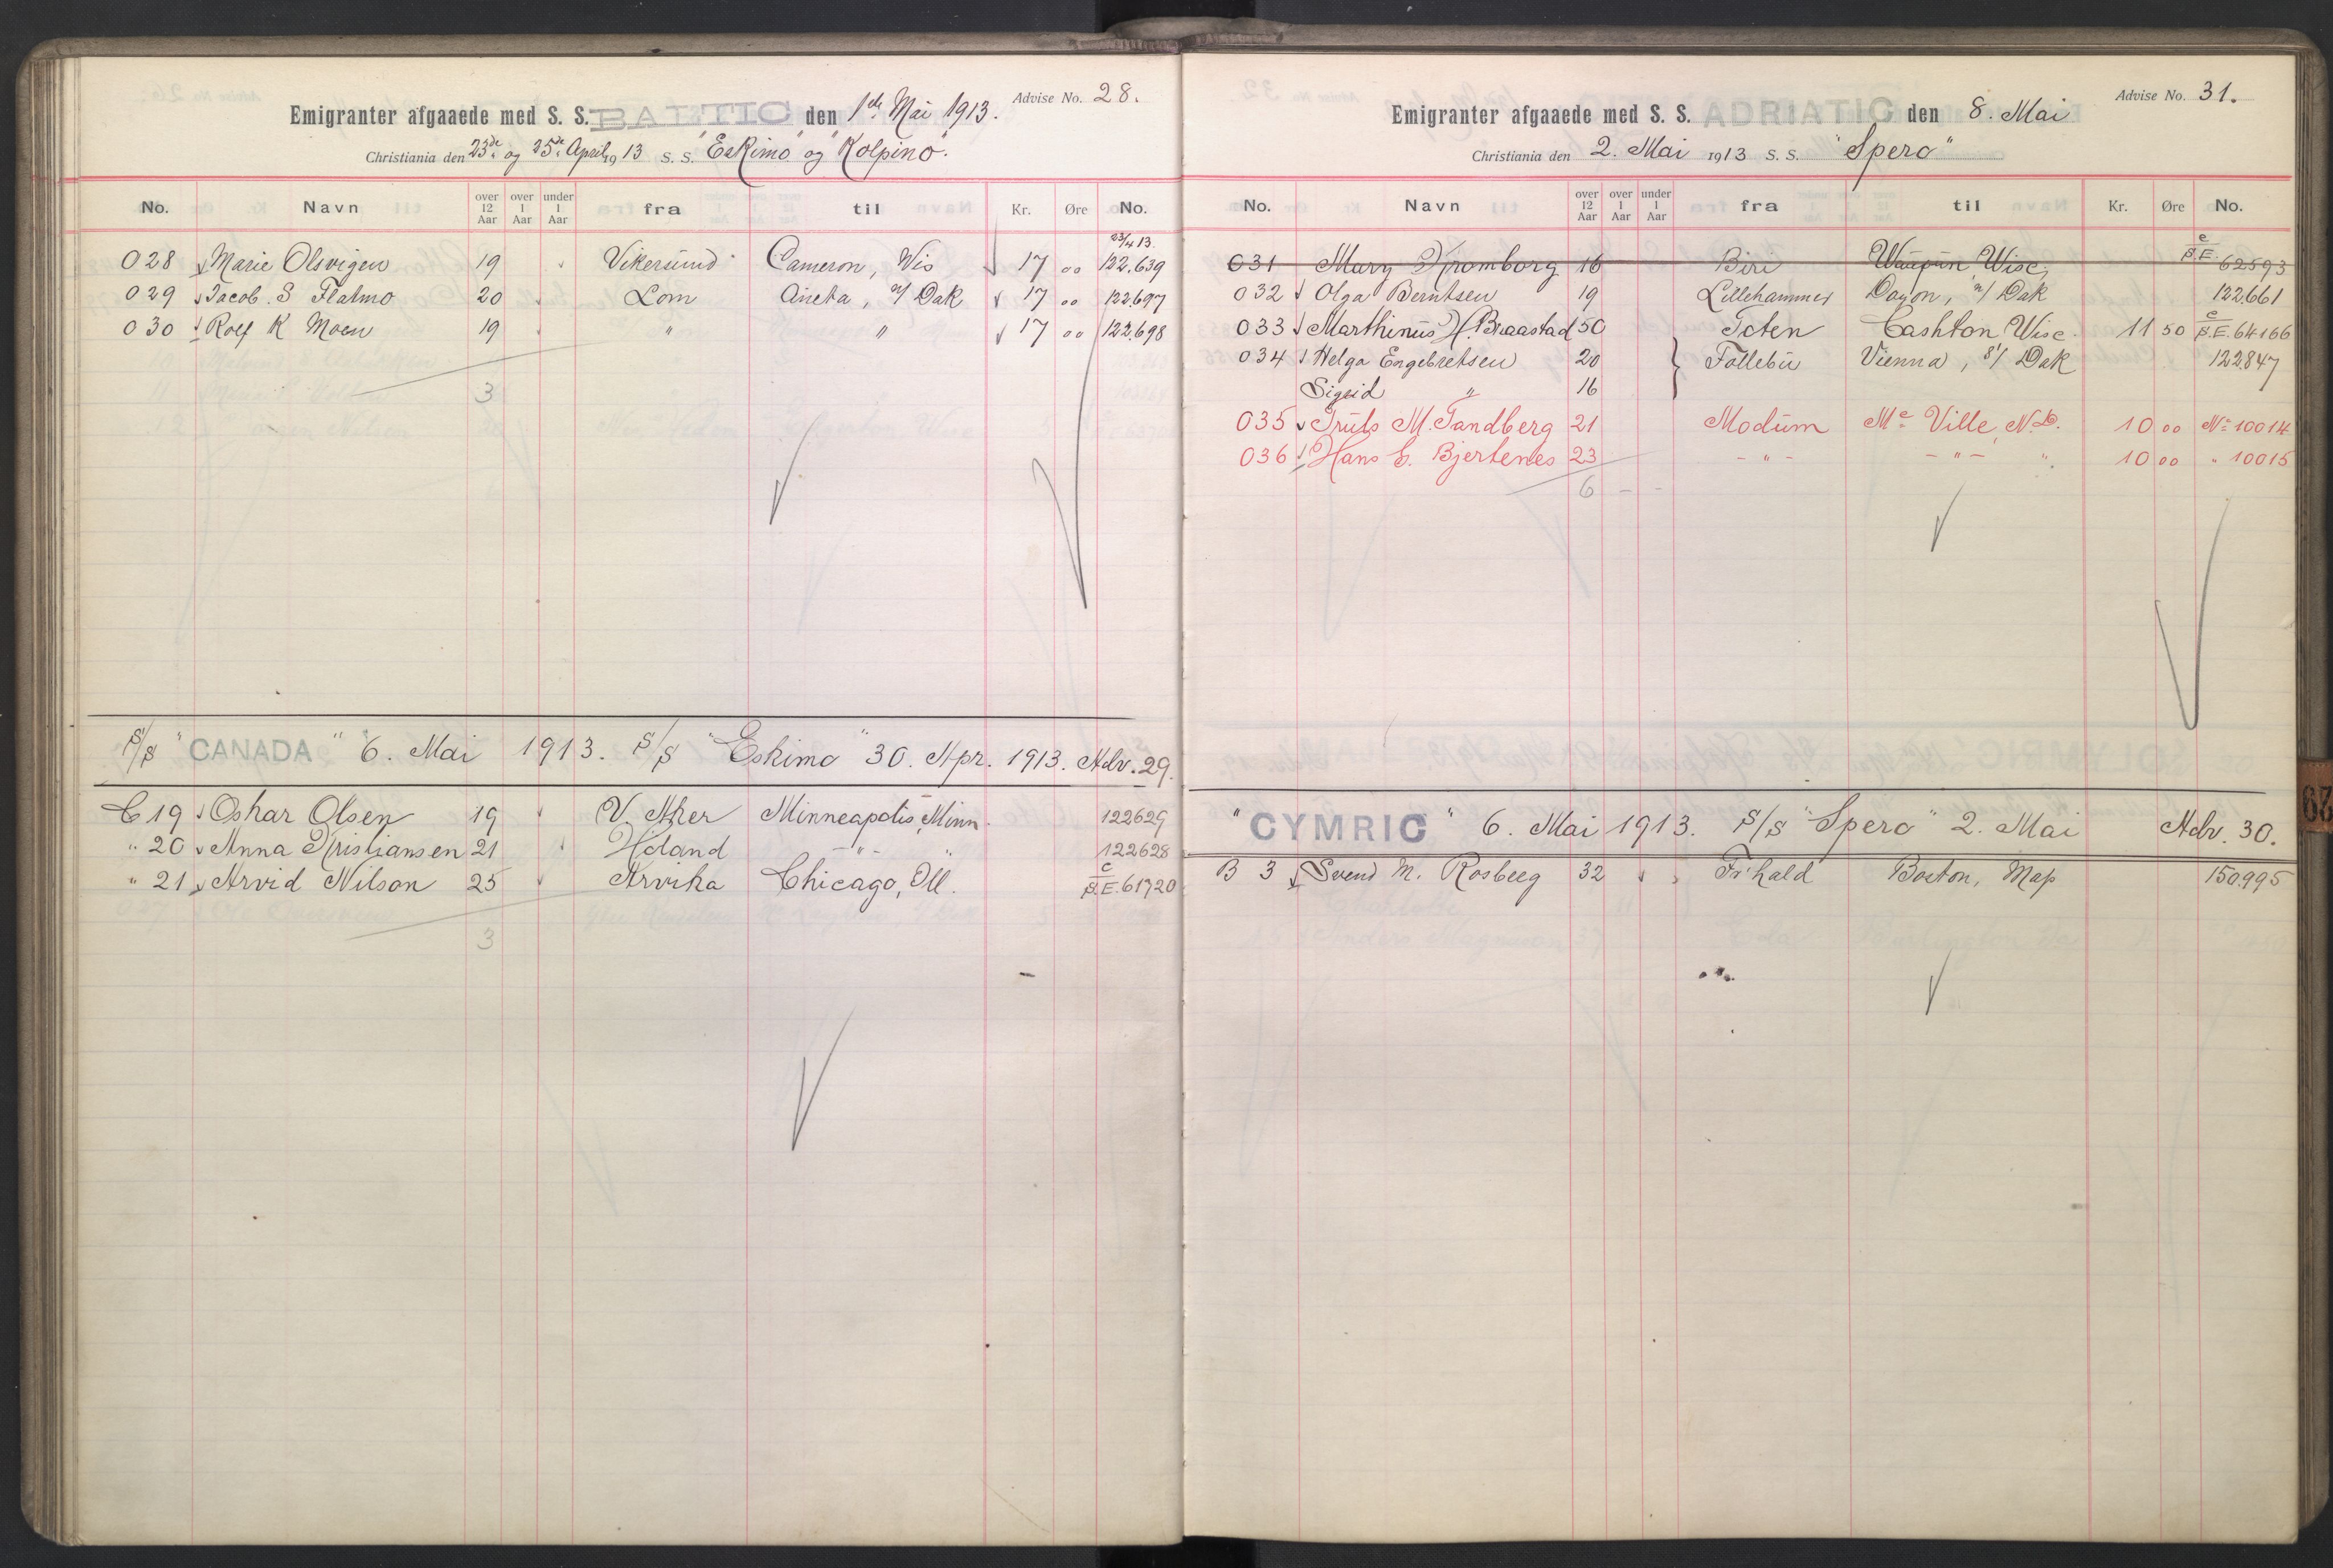 Advise No. 28.
Emigranter afgaaede med S. S. BALTIC den 1ste Mai 1913.
Christiania den 23de og 25de April 1913 S. S. "Eskimo" og "Kolpino".
No. Navn over 12 Aar over 1 Aar under 1 Aar fra til Kr. Øre No.
23/4 13.
028 Marie Olsvigen 19 Vikersund Cameron, Wis 17 00 122.639
029 Jacob. S Flatmo 20 Lom Aneta, N/ Dak 17 00 122.697
030 Rolf K Moen 19 " " 17 00 122.698
3
S/S "CANADA" 6. Mai 1913. S/S "Eskimo" 30. Apr. 1913. Adv. 29.
C 19 Oskar Olsen 19 V. Aker Minneapolis, Minn. 122629
" 20 Anna Kristiansen 21 Höland - " - " 122628
" 21 Arvid Nilson 25 Arvika Chicago, Ill. c/S.E. 61720
3
Advise No. 31.
Emigranter afgaaede med S. S. ADRIATIC den 8. Mai
Christiania den 2. Mai 1913 S. S. "Spero"
No. Navn over 12 Aar over 1 Aar under 1 Aar fra til Kr. Øre No.
031 Mary Kromborg 16 Biri Waupun, Wisc, c/S.E. 62593
032 Olga Berntsen 19 Lillehammer N/ Dak 122661
033 Marthinus H. Braastad 50 Toten Cashton Wisc. 11 50 c/S.E. 64166
034 Helga Engebretsen 20 Follebu Vienna, S/ Dak 122847
Sigrid " 16
035 Truls M. Tandberg 21 Modum Mc Ville, N.D. 10 00 No 10014
036 Hans C. Bjertenes 23 - " - - " - " 10 00 " 10015
6 - -
"CYMRIC" 6. Mai 1913. S/S "Spero" 2. Mai Adv. 30.
B 3 Svend M. Rosberg 32 Fr'hald Boston, Mass 150.995
29